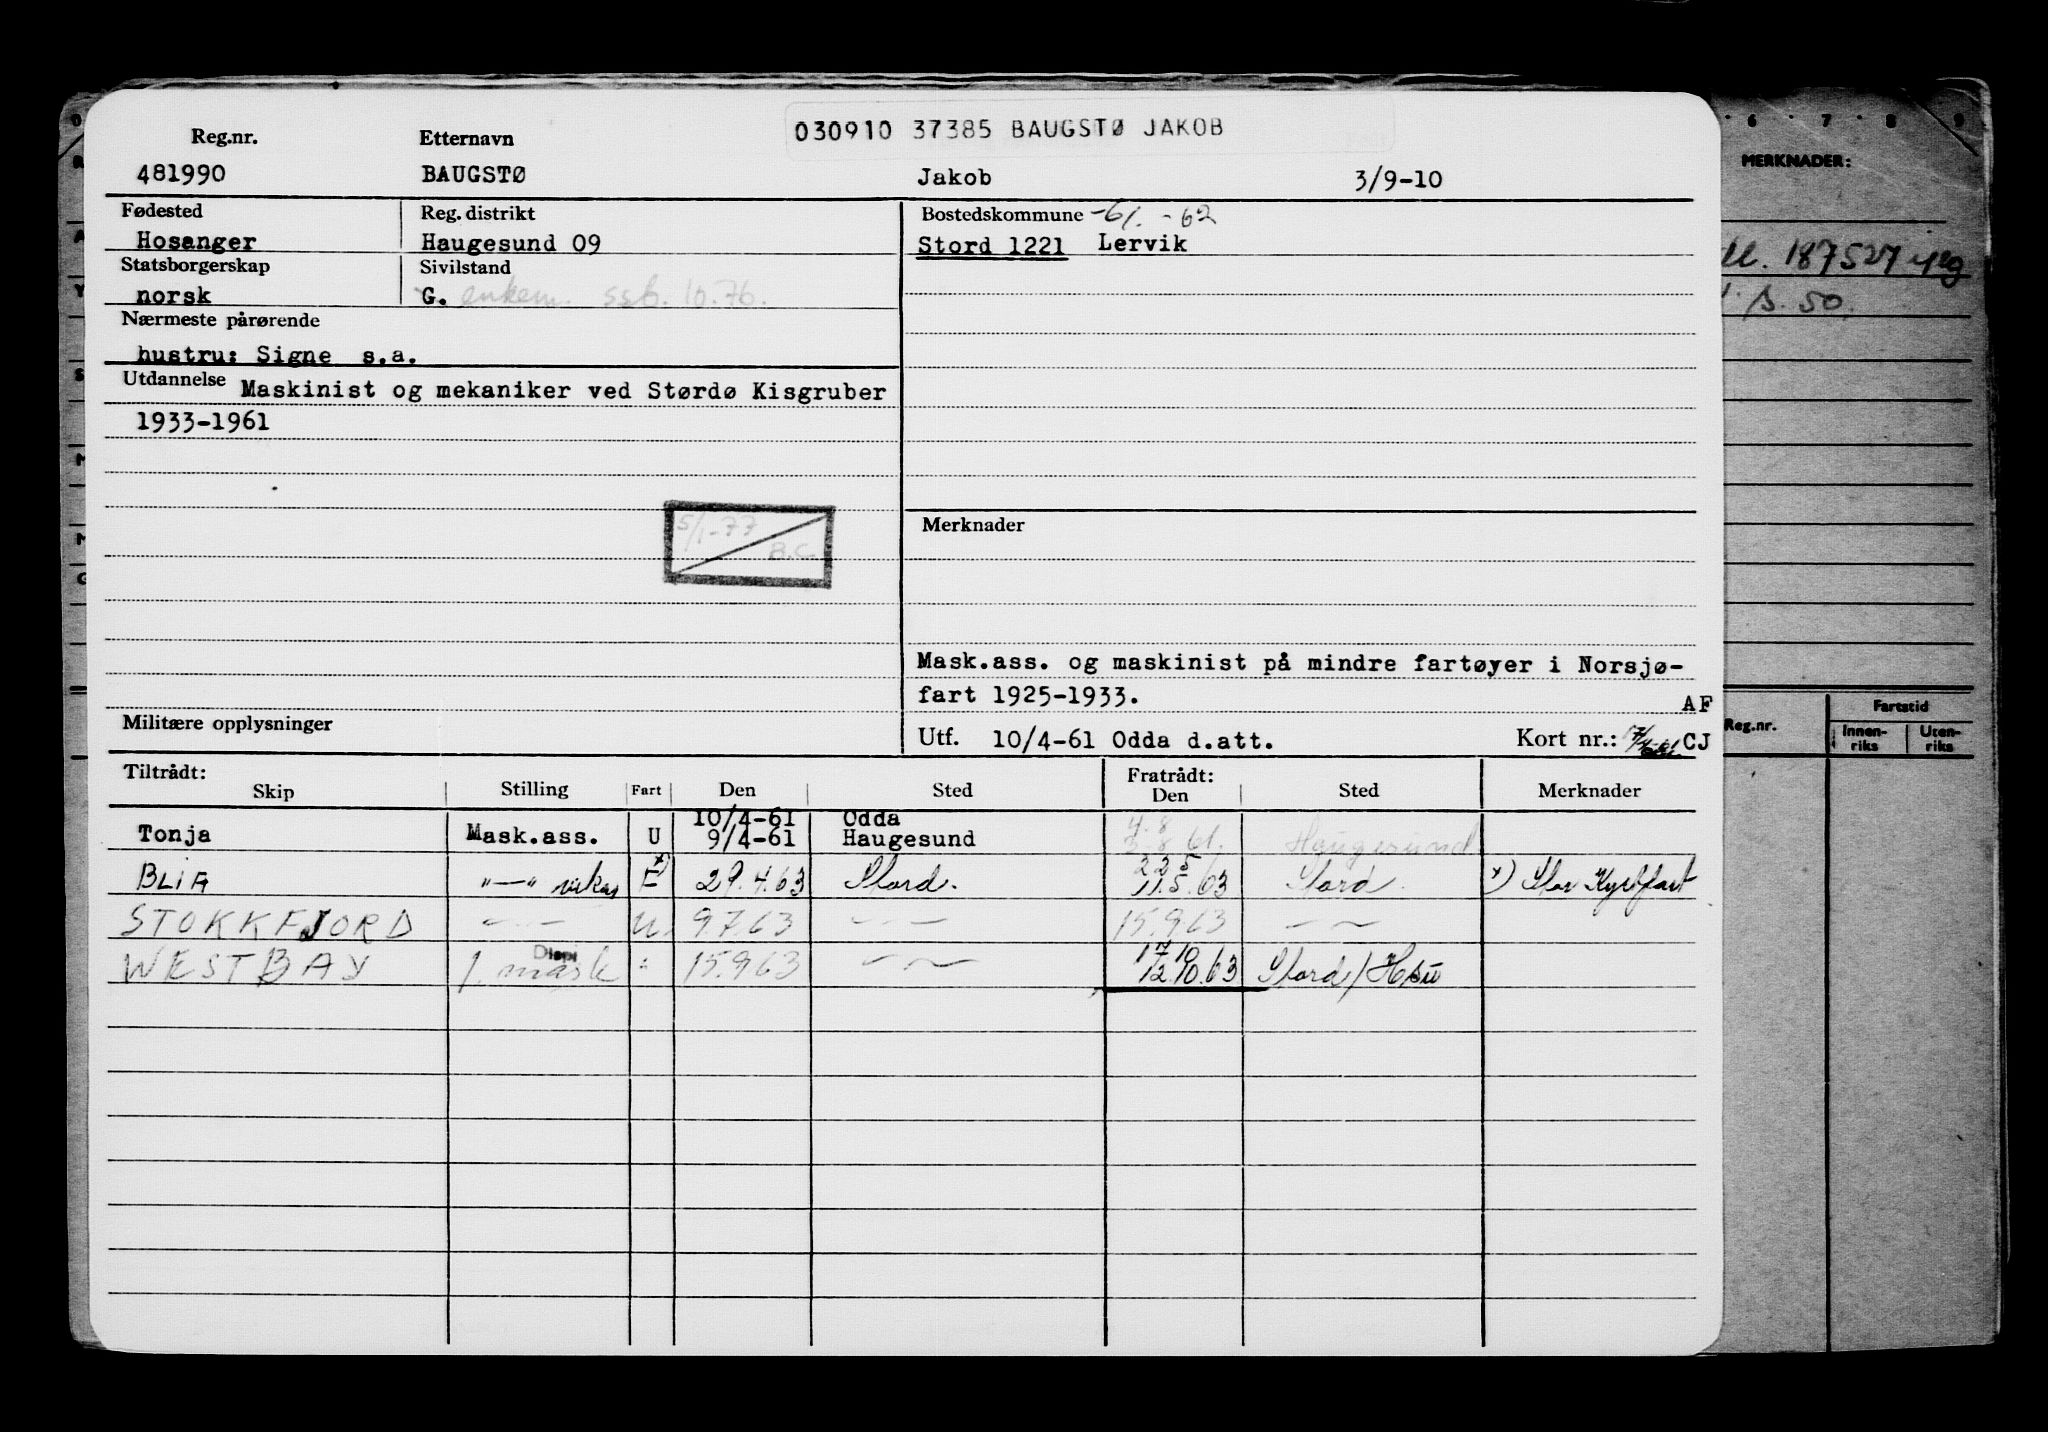 030910 37385 BAUGSTØ JAKOB
Reg.nr. Etternavn
481990 BAUGSTØ Jakob 3/9-10
Fødested Reg. distrikt Bostedskommune -61. -62
Hosanger Haugesund 09 Stord 1221 Lervik
Statsborgerskap Sivilstand
norsk G. enkem. ssb. 10.76.
Nærmeste pårørende
hustru: Signe s.a.
Utdannelse Maskinist og mekaniker ved Størdø Kisgruber
1933-1961
5/1-77
B.C.
Merknader
Mask.ass. og maskinist på mindre fartøyer i Norsjø-
fart 1925-1933.
AF
Militære opplysninger
Utf. 10/4-61 Odda d.att. Kort nr.: CJ
Tiltrådt: Fratrådt:
Skip Stilling Fart Den Sted Den Sted Merknader
10/4-61 Odda 4.8
Tonja Mask.ass. U 9/4-61 Haugesund 3.8 61. Haugesund
22.5
BLIA "—" vikar E x) 29.4.63 Stord. 11.5./63 Stord. x) Stor Kystfart
STOKKFJORD —"— U. 9.7.63 —"— 15.9.63 —"—
Disp 17.10
WESTBAY 1. mask " 15.9.63 —"— 12.10.63 Stord/Hsu
6 7 8 9
MERKNADER:
187527
s. 50.
Reg.nr. Fartstid
Innen-
riks
Uten-
riks